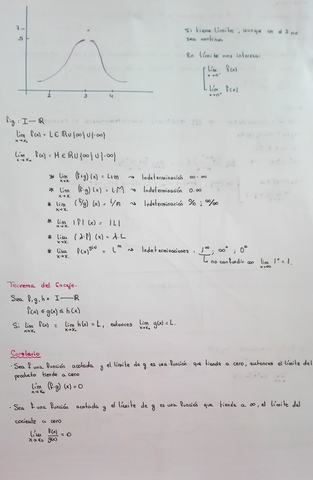 7
5
2
3
4
Si tiene límite, aunque en el 3 no
sea continua
En límite nos interesa:
lim f(x)
x→x₀⁻
lim f(x)
x→x₀⁺
f,g : I → ℝ
lim f(x) = L ∈ ℝ ∪ {∞} ∪ {-∞}
x→x₀
lim f(x) = M ∈ ℝ ∪ {∞} ∪ {-∞}
x→x₀
* lim (f+g)(x) = L+M → Indeterminación ∞-∞
x→x₀
* lim (f·g)(x) = L·M → Indeterminación 0·∞
x→x₀
* lim (f/g)(x) = L/M → Indeterminación 0/0 ; ∞/∞
x→x₀
* lim |f|(x) = |L|
x→x₀
* lim (λ·f)(x) = λ·L
x→x₀
* lim f(x)^g(x) = L^M → Indeterminaciones 1^∞ ; ∞⁰ ; 0⁰
x→x₀
no confundir con lim 1ˣ = 1.
x→∞
Teorema del Encaje.
Sea f, g, h : I → ℝ
f(x) ≤ g(x) ≤ h(x)
Si lim f(x) = lim h(x) = L, entonces lim g(x) = L.
x→x₀ x→x₀ x→x₀
Corolario
· Sea f una función acotada y el límite de g es una función que tiende a cero, entonces el límite del
producto tiende a cero
lim (f·g)(x) = 0
x→x₀
· Sea f una función acotada y el límite de g es una función que tiende a ∞, el límite del
cociente a cero
lim f(x)/g(x) = 0
x→x₀